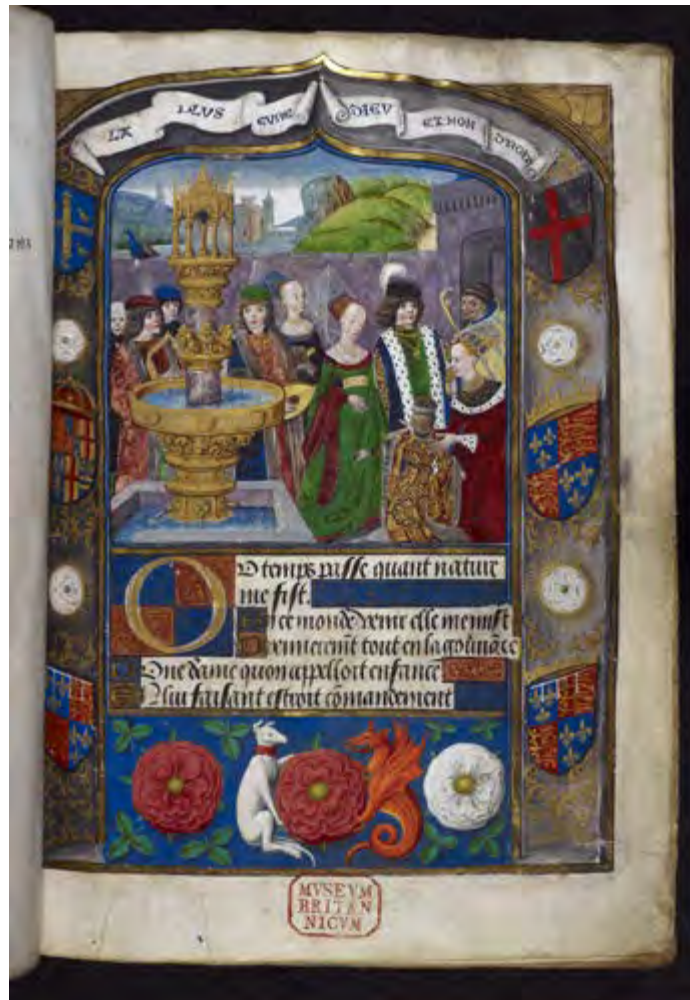 LA PLUS EVRE DIEV ET MON DROIT
O temps passe quant nature
me fist.
En ce monde venir elle me mist
Premieremēt tout en la gouvnāce
Dune dame quon appelloit enfance
Et lui faisant estroit cōmandement
MVSEVM
BRITAN
NICVM